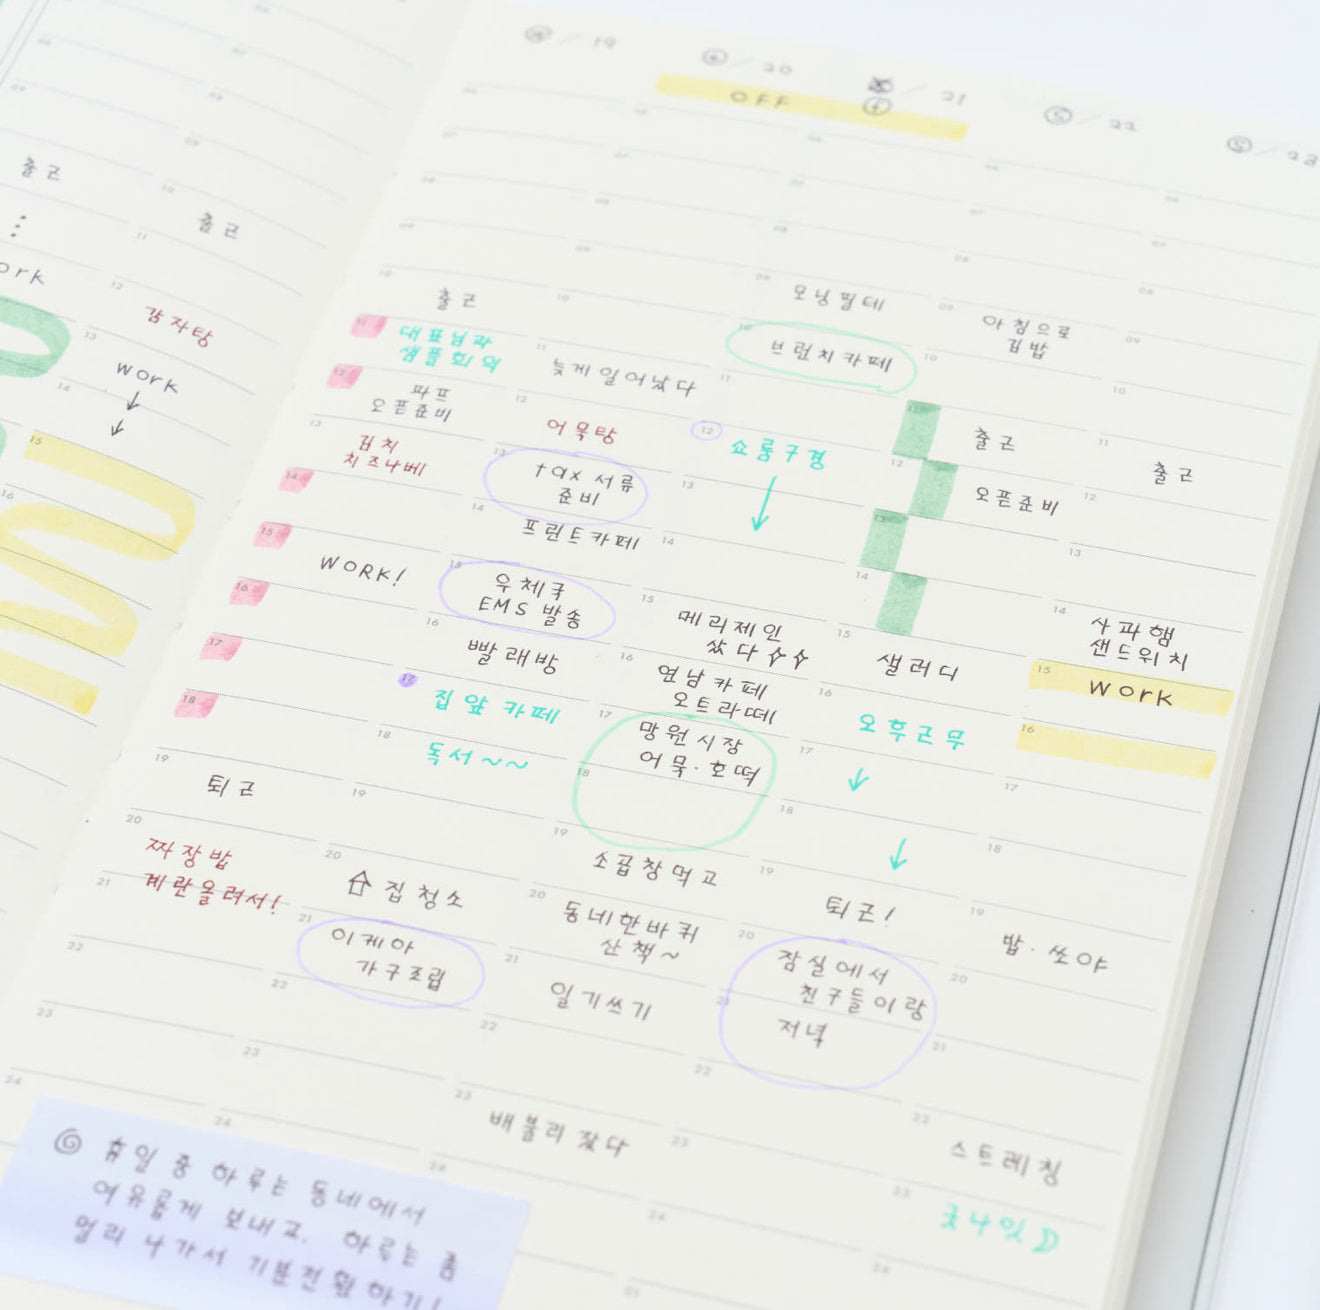 출근
⋮
ork
출근
감자탕
work
/ 19
/ 20
/ 21
/ 22
/ 23
OFF
출근
대표님과
샘플회의
파프
오픈준비
김치
치즈나베
WORK!
퇴근
짜장밥
계란올려서!
늦게일어났다
어묵탕
tax 서류
준비
프린트카페
우체국
EMS 발송
빨래방
집 앞 카페
독서~~
집청소
이케아
가구조립
모닝필테
브런치카페
쇼룸구경
메리제인
샀다
연남카페
오트라떼
망원시장
어묵·호떡
소곱창먹고
동네한바퀴
산책~
일기쓰기
배불리 잤다
아침으로
김밥
출근
오픈준비
샐러디
오후근무
퇴근!
잠실에서
친구들이랑
저녁
출근
사과햄
샌드위치
work
밥·쏘야
스트레칭
굿나잇
휴일 중 하루는 동네에서
여유롭게 보내고. 하루는 좀
멀리 나가서 기분전환하기!